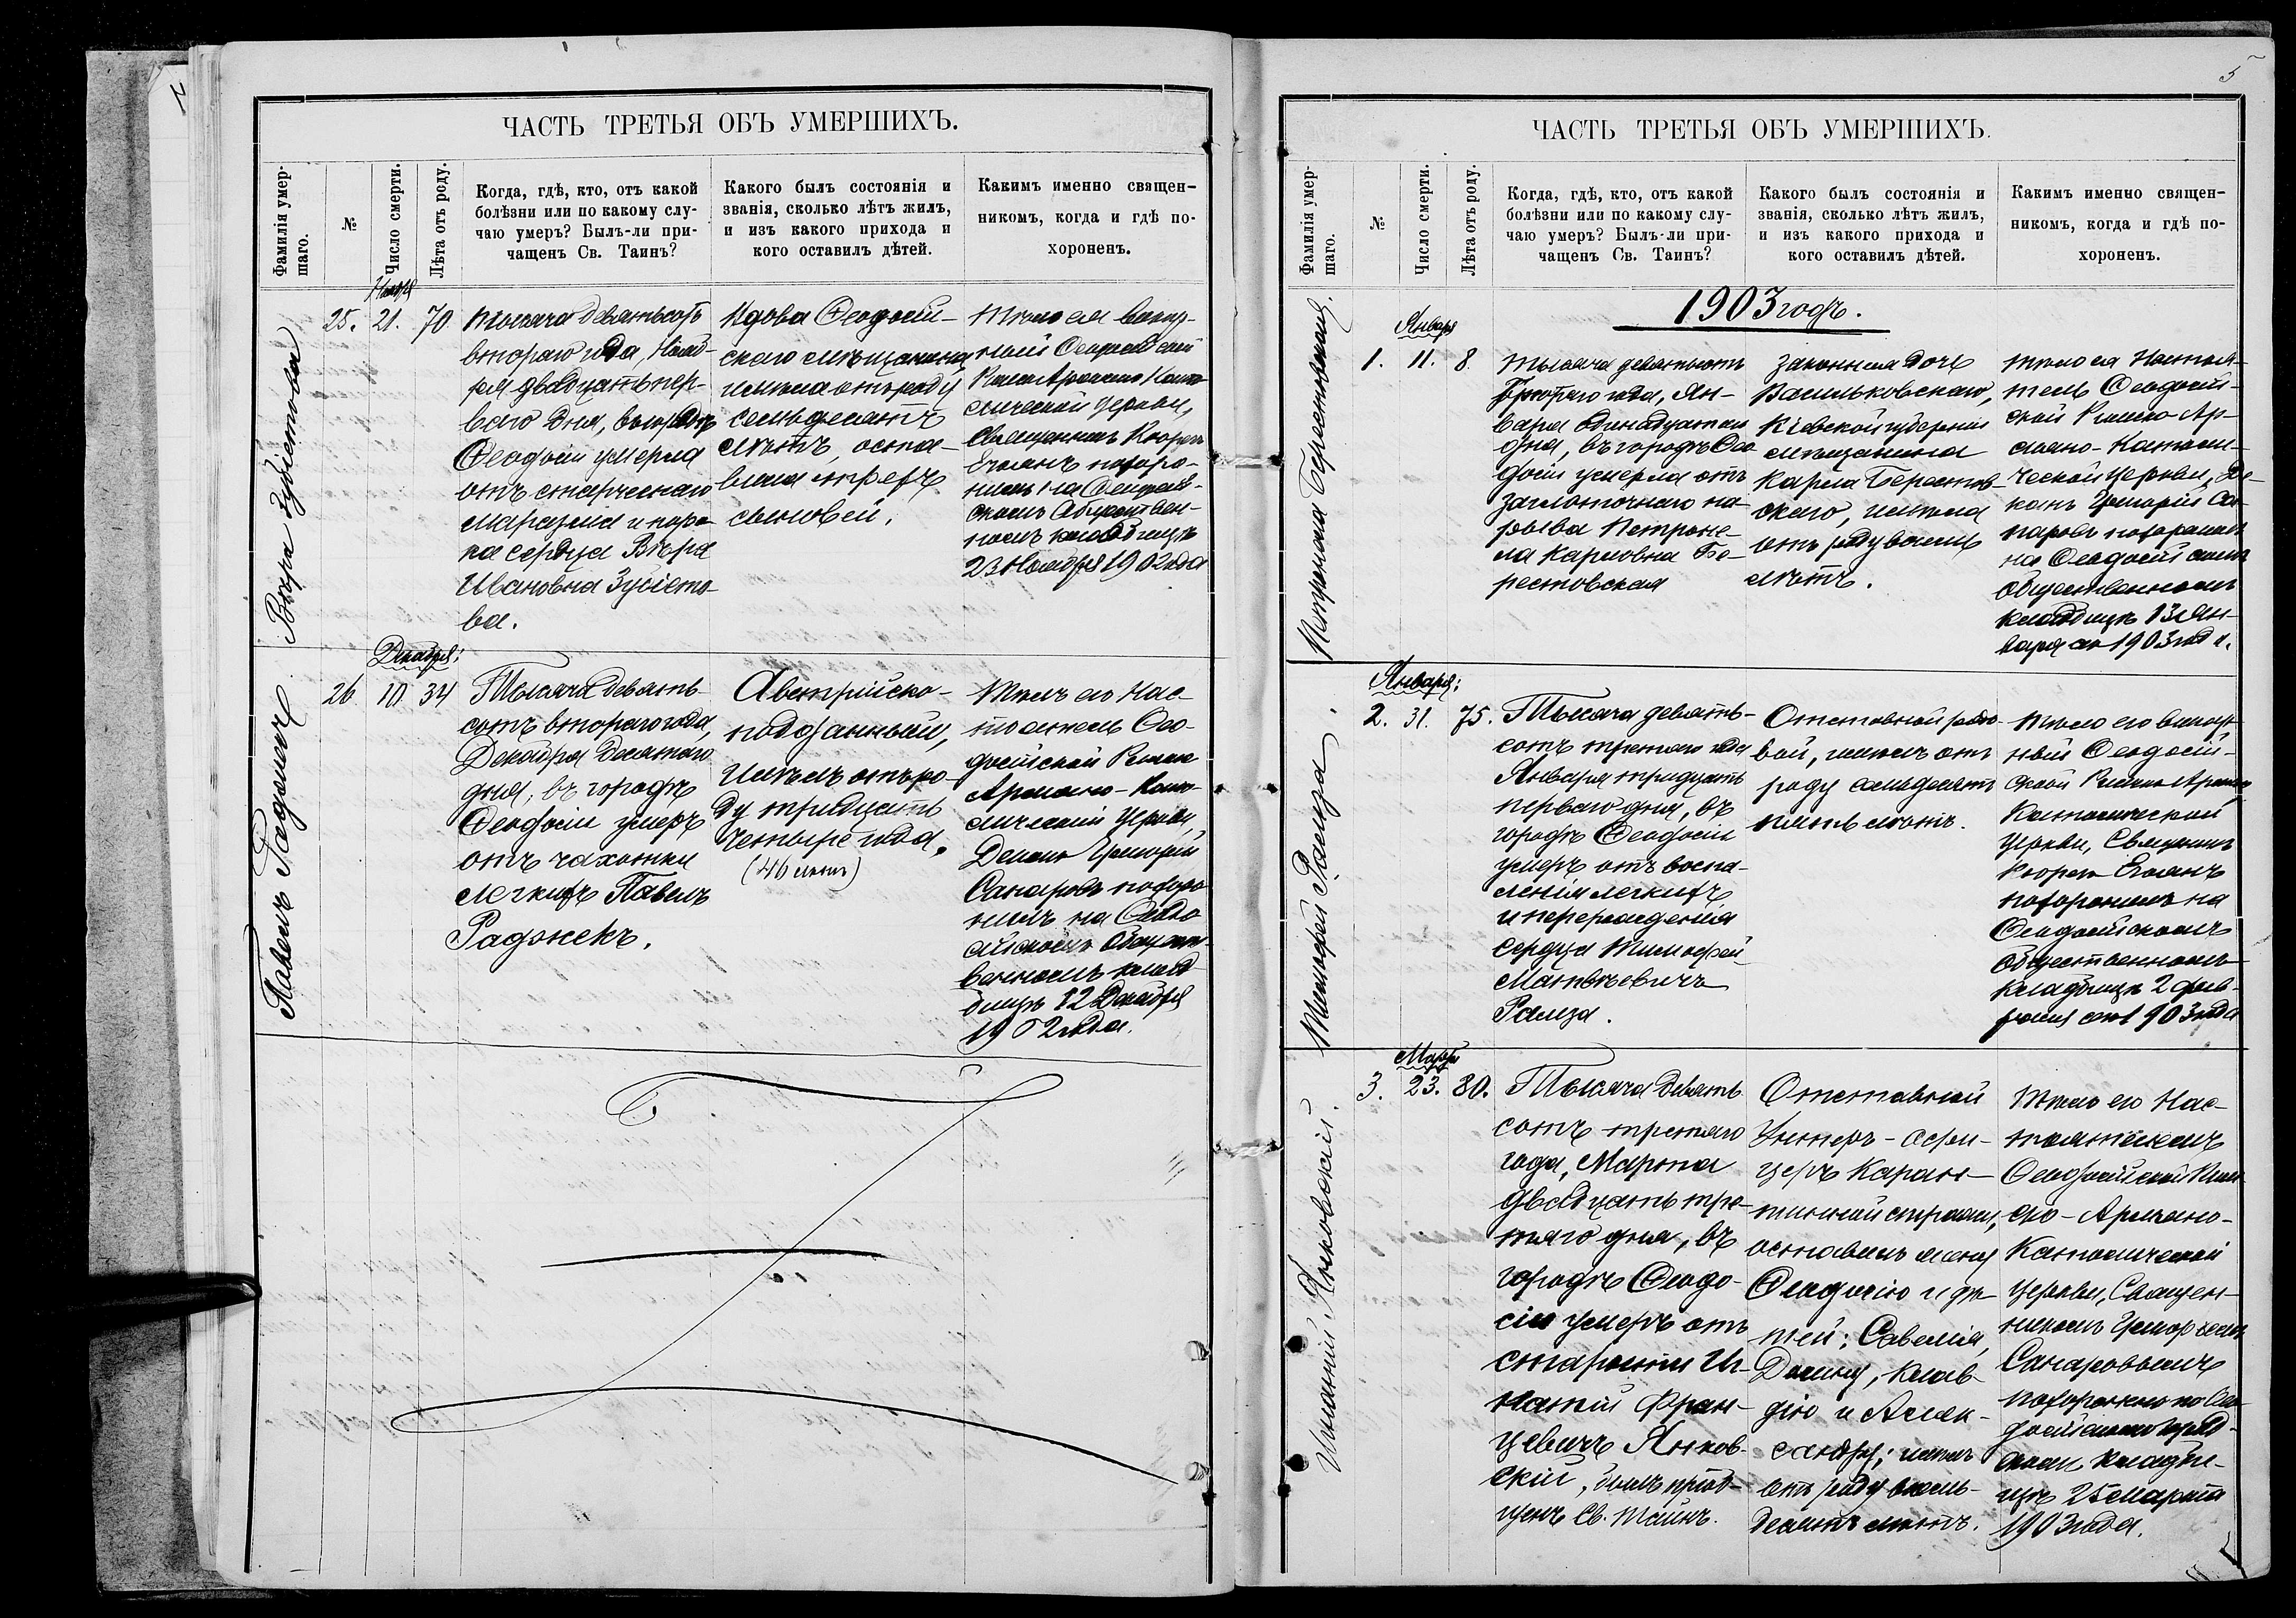 ЧАСТЬ ТРЕТЬЯ ОБЪ УМЕРШИХЪ.
Фамилія умер-
шаго.
№
Число смерти.
Лѣта отъ роду.
Когда, гдѣ, кто, отъ какой
болѣзни или по какому слу-
чаю умеръ? Былъ-ли при-
чащенъ Св. Таинъ?
Какого былъ состоянія и
званія, сколько лѣтъ жилъ,
и изъ какого прихода и
кого оставилъ дѣтей.
Какимъ именно священ-
никомъ, когда и гдѣ по-
хороненъ.
Вѣра Зубіетова
Ноября
25. 21. 70
Тысяча девятьсотъ
второго года, Нояб-
ря двадцать пер-
ваго дня, въ городѣ
Ѳеодосіи умерла
отъ старческаго
маразма и поро-
ка сердца Вѣра
Ивановна Зубіето-
ва.
Вдова Ѳеодосій-
скаго мѣщанина,
имѣла отъ роду
семьдесятъ
лѣтъ, оста-
вила трехъ
сыновей.
Тѣло ея викар-
ный Ѳеодосійской
Римско Армяно Като-
лической церкви,
Священникъ
похоро-
нилъ на Ѳеодосій-
скомъ Обществен-
номъ кладбищѣ
23 Ноября 1902 года
Павелъ Раджекъ
Декабря:
26 10 34
Тысяча девять-
сотъ второго года,
Декабря десятаго
дня, въ городѣ
Ѳеодосіи умеръ
отъ чахотки
легкихъ Павелъ
Раджекъ.
Австрійско-
подданный,
имѣлъ отъ ро-
ду тридцать
четыре года.
(46 лѣтъ)
Тѣло его Нас-
тоятель Ѳео-
досійской Римско
Армяно-Като-
лической Церкви,
Деканъ Григорій
Сапаровъ похоро
нилъ на Ѳеодо
сійскомъ Общест-
венномъ клад-
бищѣ 12 Декабря
1902 года.
5
ЧАСТЬ ТРЕТЬЯ ОБЪ УМЕРШИХЪ.
Фамилія умер-
шаго.
№
Число смерти.
Лѣта отъ роду.
Когда, гдѣ, кто, отъ какой
болѣзни или по какому слу-
чаю умеръ? Былъ-ли при-
чащенъ Св. Таинъ?
Какого былъ состоянія и
званія, сколько лѣтъ жилъ,
и изъ какого прихода и
кого оставилъ дѣтей.
Какимъ именно священ-
никомъ, когда и гдѣ по-
хороненъ.
1903 годъ.
Петронела Берестовская.
Января
1. 11. 8.
Тысяча девятьсотъ
третьяго года, Ян-
варя одинадцатаго
дня, въ городѣ Ѳео
досіи умерла отъ
заглоточнаго на-
рыва Петроне-
ла Карловна Бе-
рестовская
Законная дочь
Васильковскаго,
Кіевской губерніи
мѣщанина
Карла Берестов-
скаго, имѣла
отъ роду восемь
лѣтъ.
Тѣло ея Настоя-
тель Ѳеодосій-
ской Римско Ар-
мяно-Католи-
ческой Церкви, Де-
канъ Григорій Са-
паровъ похоронилъ
на Ѳеодосійскомъ
Общественномъ
кладбищѣ 13 Ян-
варя 1903 года.
Тимофей Рамза.
Января:
2. 31. 75.
Тысяча девять-
сотъ третьяго года
Января тридцать
перваго дня, въ
городѣ Ѳеодосіи
умеръ отъ воспа-
ленія легкихъ
и перерожденія
сердца Тимофей
Матвѣевичъ
Рамза.
Отставной рядо-
вой, имѣлъ отъ
роду семьдесятъ
пять лѣтъ.
Тѣло его викар-
ный Ѳеодосій-
ской Римско Армяно
Католической
Церкви, Священникъ
похоронилъ на
Ѳеодосійскомъ
Общественномъ
кладбищѣ 2 Фев-
раля 1903 года
Игнатій Янковскій.
Марта
3. 23. 80.
Тысяча девять
сотъ третьяго
года, Марта
двадцать тре-
тьяго дня, въ
городѣ Ѳеодо-
сіи умеръ отъ
старости Иг-
натій Фран-
цевичъ Янков-
скій, былъ прича-
щенъ Св. Таинъ.
Отставной
Унтеръ-офи-
церъ Каран-
тинной стражи,
оставилъ жену
Ѳеодосію и дѣ-
тей: Савелія,
Клав-
дію и Алек-
сандру; имѣлъ
отъ роду восемь-
десятъ лѣтъ.
Тѣло его Нас-
тоятелемъ
Ѳеодосійской Рим
ско-Армяно-
Католической
Церкви, Священ-
никомъ Григоріемъ
Сапаровымъ
похоронено на Ѳео-
досійскомъ город-
скомъ кладби-
щѣ 25 Марта
1903 года.